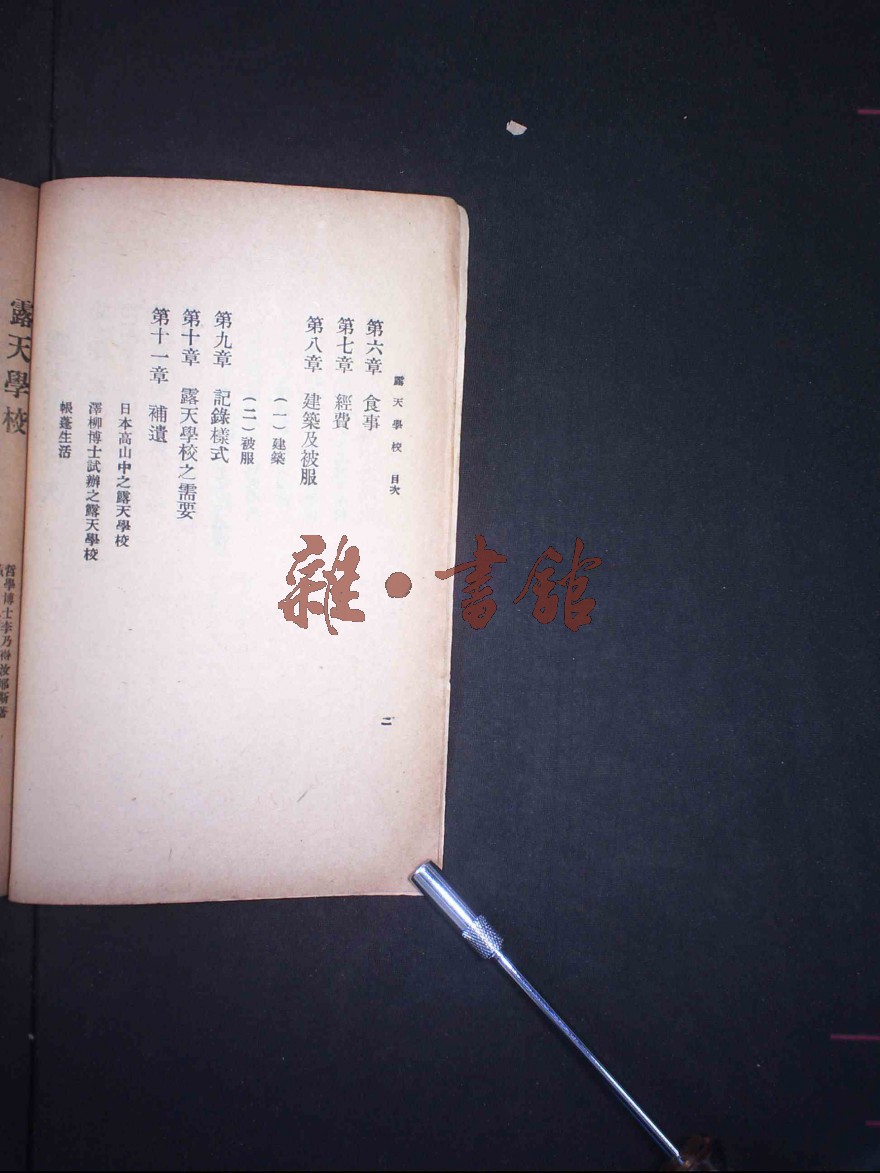 露天學校 目次
第六章 食事
第七章 經費
第八章 建築及被服
(一)建築
(二)被服
第九章 記錄樣式
第十章 露天學校之需要
第十一章 補遺
日本高山中之露天學校
澤柳博士試辦之露天學校
帳蓬生活
二
露天學校
哲學博士李乃
雜·書館